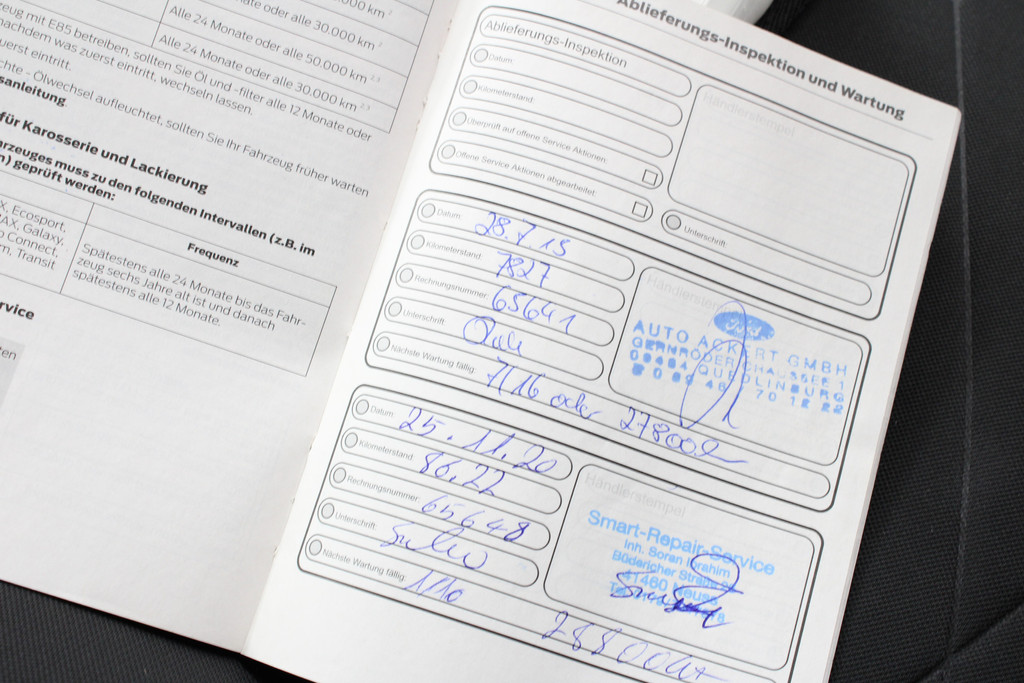 .000 km ²
oder alle 30.000 km ²
Alle 24 Monate oder alle 50.000 km ²·³
Alle 24 Monate oder alle 30.000 km ²·³
zeug mit E85 betreiben, sollten Sie Öl und -filter alle 12 Monate oder
nachdem was zuerst eintritt, wechseln lassen.
zuerst eintritt.
chte - Ölwechsel aufleuchtet, sollten Sie Ihr Fahrzeug früher warten
sanleitung.
für Karosserie und Lackierung
hrzeuges muss zu den folgenden Intervallen (z.B. im
n) geprüft werden:
X, Ecosport,
AX, Galaxy,
o Connect,
rn, Transit
Frequenz
Spätestens alle 24 Monate bis das Fahr-
zeug sechs Jahre alt ist und danach
spätestens alle 12 Monate.
rvice
ten
Ablieferungs-Inspektion und Wartung
Ablieferungs-Inspektion
Datum:
Kilometerstand:
Überprüft auf offene Service Aktionen:
Offene Service Aktionen abgearbeitet:
Händlerstempel
Unterschrift:
Datum: 28.7 15
Kilometerstand: 7827
Rechnungsnummer: 65641
Unterschrift:
Nächste Wartung fällig: 7/16 oder 27800
Händlerstempel
Ford
AUTO ACKERT GMBH
GERNRÖDER CHAUSSEE 1
06484 QUEDLINBURG
70 12 22
Datum: 25.11.20
Kilometerstand: 86,22
Rechnungsnummer: 65648
Unterschrift:
Nächste Wartung fällig: 1/10
28800
Händlerstempel
Smart-Repair-Service
Inh. Soran Ibrahim
Büdericher Straße
41460 Neuss